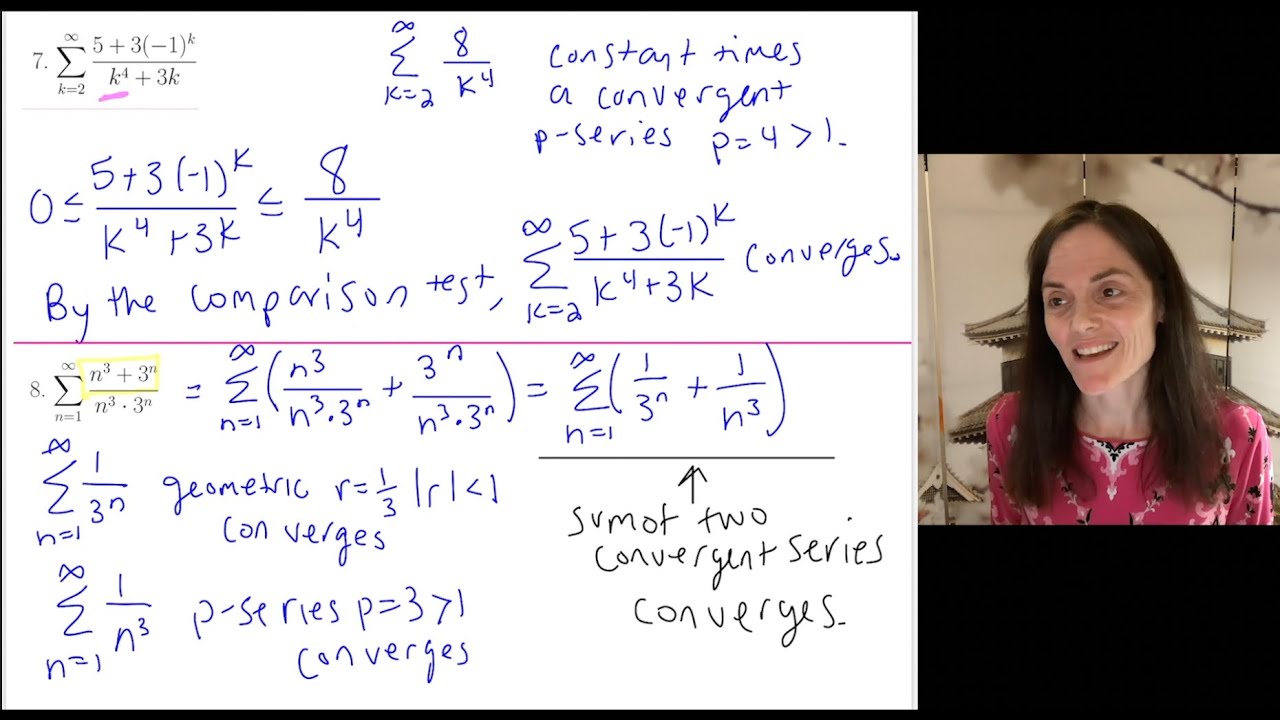 7. ∑_{k=2}^{∞} (5 + 3(−1)^k)/(k^4 + 3k)
∑_{k=2}^{∞} 8/k^4 constant times
a convergent
p-series p=4>1.
0 ≤ (5+3(-1)^k)/(k^4+3k) ≤ 8/k^4
By the comparison test, ∑_{k=2}^{∞} (5+3(-1)^k)/(k^4+3k) converges.
8. ∑_{n=1}^{∞} (n^3 + 3^n)/(n^3 · 3^n) = ∑_{n=1}^{∞} (n^3/(n^3·3^n) + 3^n/(n^3·3^n)) = ∑_{n=1}^{∞} (1/3^n + 1/n^3)
∑_{n=1}^{∞} 1/3^n geometric r=1/3 |r|<1
converges
↑
sum of two
convergent series
converges.
∑_{n=1}^{∞} 1/n^3 p-series p=3>1
converges